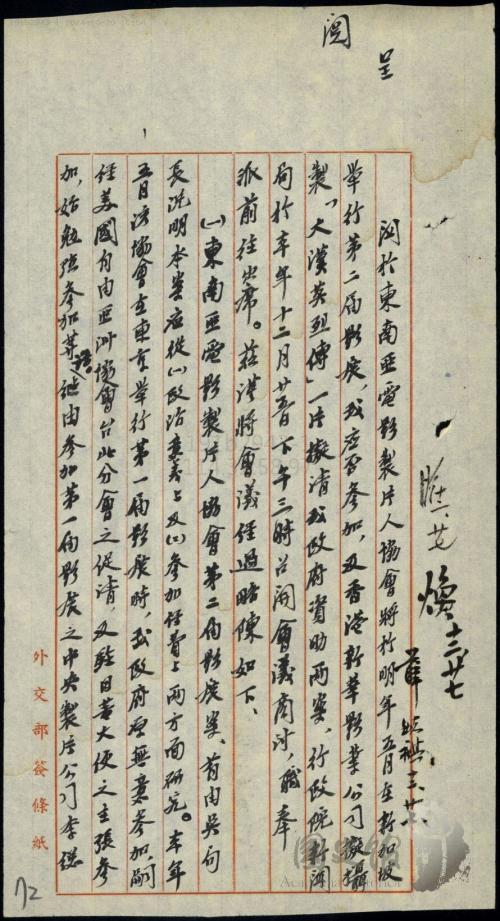 呈
閱
關於東南亞電影製片人協會將於明年五月在新加坡
舉行第二屆影展,我應否參加,及香港新華影業公司擬攝
製「大漢英烈傳」一片擬請我政府資助兩案,行政院新聞
局於本年十二月廿五日下午三時召開會議商討,職奉
派前往出席。茲謹將會議經過略陳如下、
(一)東南亞電影製片人協會第二屆影展案、首由吳局
長說明本案應從(一)政治意義上及(二)參加經費上兩方面研究。本年
五日該協會在東京舉行第一屆影展時,我政府原無意參加,嗣
經美國自由亞洲協會台北分會之促請,及駐日董大使之主張參
加,始勉強參加等語。繼由參加第一屆影展之中央製片公司李
外交部簽條紙
72